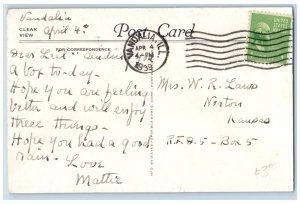 Vandalia
April 4th
CLEAR
VIEW
Post Card
FOR CORRESPONDENCE
VANDALIA, ILL.
APR 4
4 PM
Dear
A box to-day-
Hope you are feeling
better and will enjoy
these things-
Hope you had a good
rain- Love
Mattie
Mrs. W. R. Laws
Norton
Kansas
R.F.D.5- Box 5